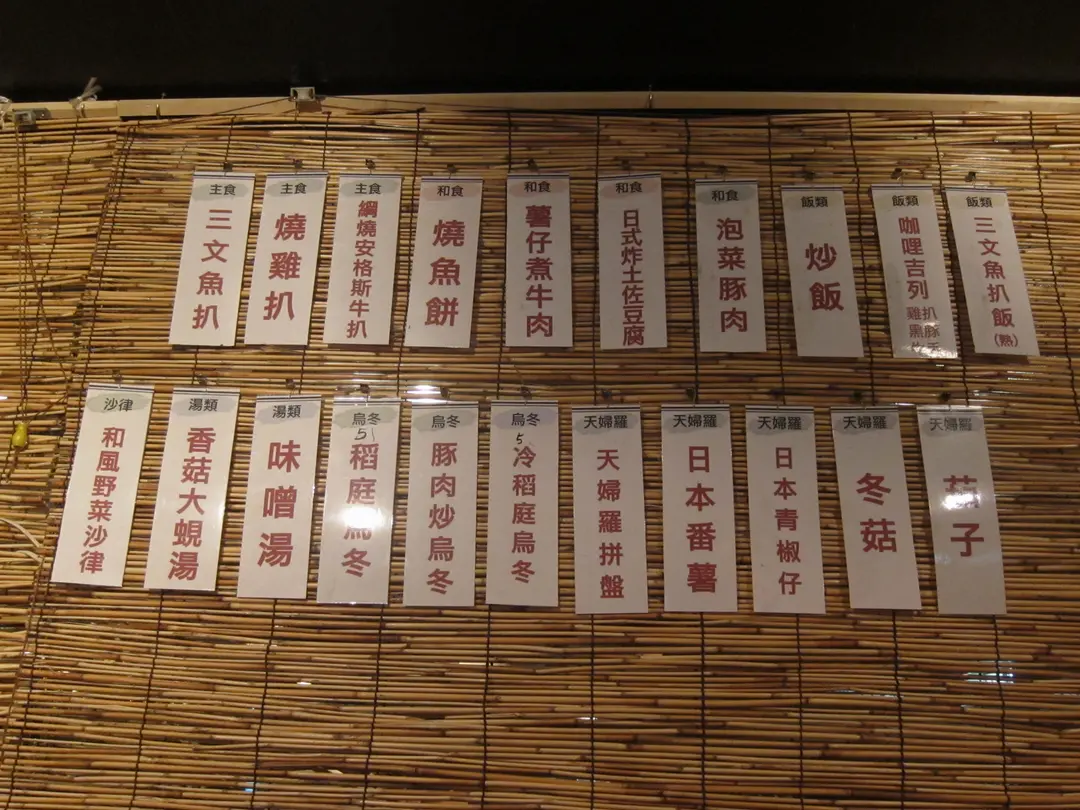 主食
三文魚扒
主食
燒雞扒
主食
綱燒安格斯牛扒
和食
燒魚餅
和食
薯仔煮牛肉
和食
日式炸土佐豆腐
和食
泡菜豚肉
飯類
炒飯
飯類
咖哩吉列
雞扒
黑豚
飯類
三文魚扒飯
(熟)
沙律
和風野菜沙律
湯類
香菇大蜆湯
湯類
味噌湯
烏冬
稻庭烏冬
烏冬
豚肉炒烏冬
烏冬
冷稻庭烏冬
天婦羅
天婦羅拼盤
天婦羅
日本番薯
天婦羅
日本青椒仔
天婦羅
冬菇
天婦羅
茄子